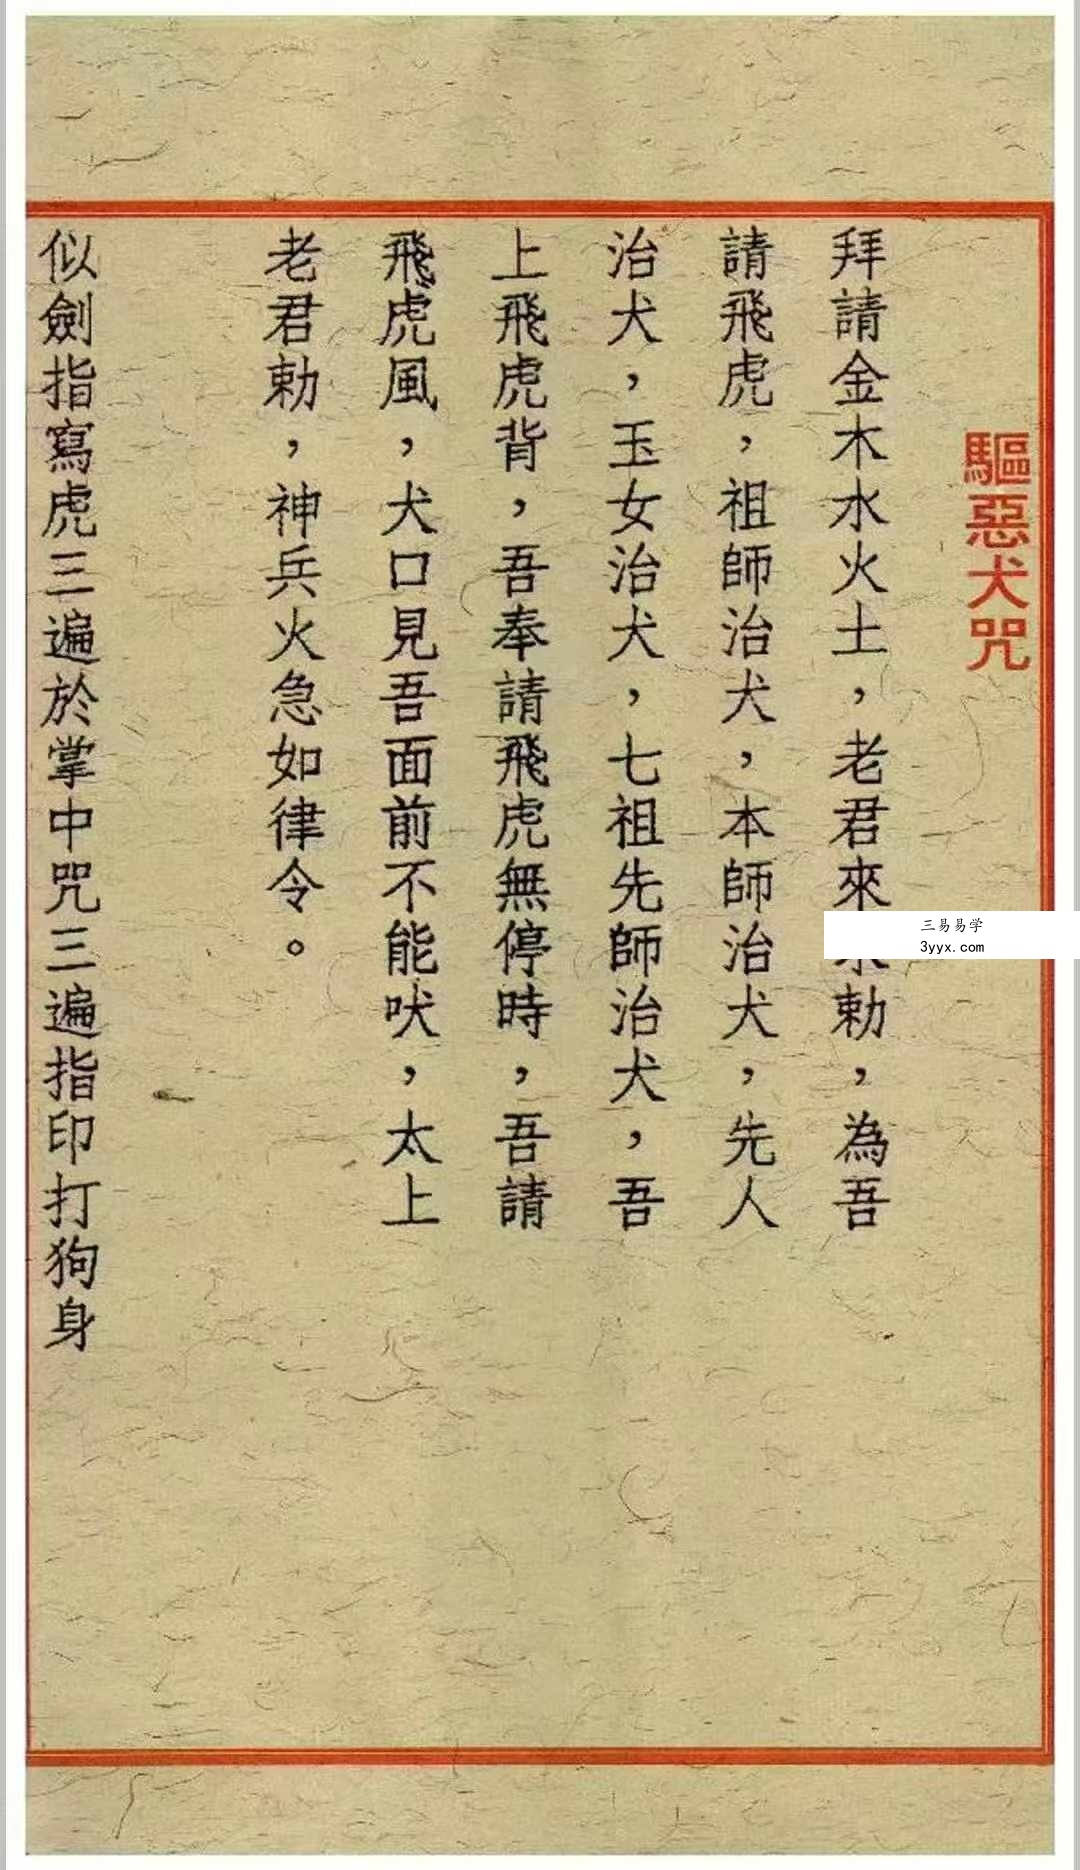 驅惡犬咒
拜請金木水火土，老君來勅，為吾
請飛虎，祖師治犬，本師治犬，先人
治犬，玉女治犬，七祖先師治犬，吾
上飛虎背，吾奉請飛虎無停時，吾請
飛虎風，犬口見吾面前不能吠，太上
老君勅，神兵火急如律令。
似劍指寫虎三遍於掌中咒三遍指印打狗身
三易易学
3yyx.com